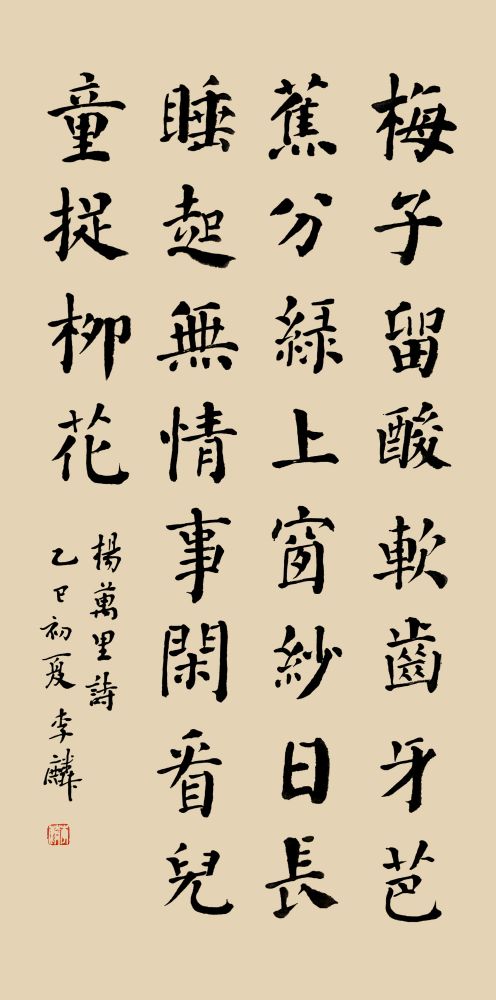 梅子留酸軟齒牙芭
蕉分綠上窗紗日長
睡起無情事閑看兒
童捉柳花
楊萬里詩
乙巳初夏李麟